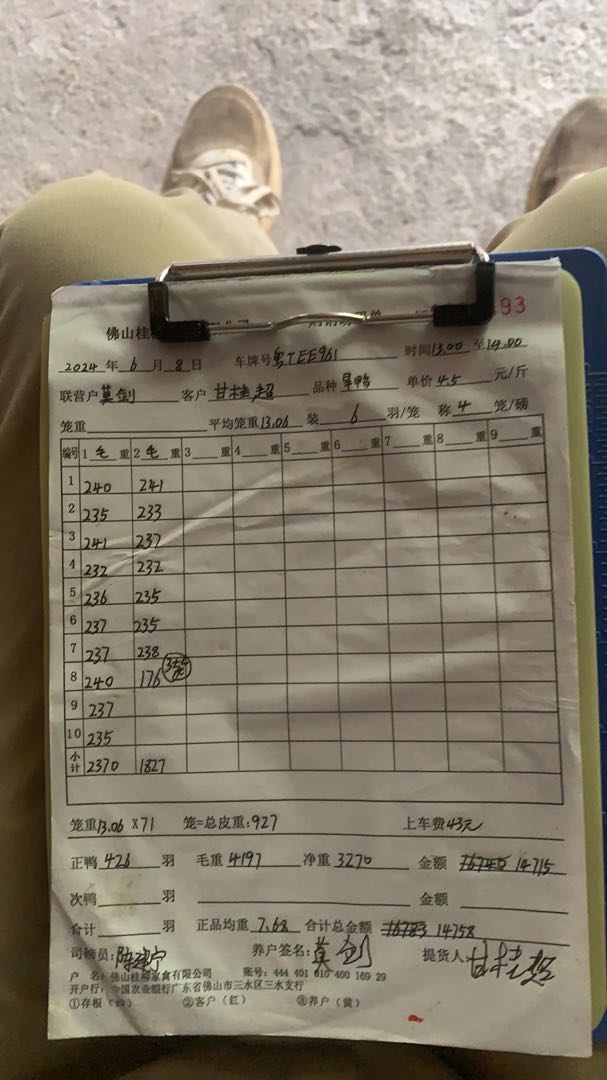 佛山桂 93
2024 年 6 月 8 日 车牌号 粤TEE961 时间 13.00 至 14.00
联营户 莫剑 客户 甘桂超 品种 单价 4.5 元/斤
笼重 平均笼重 13.06 装 6 羽/笼 称 4 笼/磅
编号 1 毛 重 2 毛 重 3 重 4 重 5 重 6 重 7 重 8 重 9 重
1 240 241
2 235 233
3 241 237
4 232 232
5 236 235
6 237 235
7 237 238
8 240 176
9 237
10 235
小计 2370 1827
笼重 13.06 X 71 笼=总皮重: 927 上车费 43元
正鸭 426 羽 毛重 4197 净重 3270 金额 14715
次鸭 羽 金额
合计 羽 正品均重 7.68 合计总金额 16783 14758
司磅员: 陈建宁 养户签名: 莫剑 提货人: 甘桂超
户 名: 佛山桂柳家禽有限公司 账号: 444 401 010 400 169 29
开户行: 中国农业银行广东省佛山市三水区三水支行
①存根(白) ②客户(红) ③养户(黄)